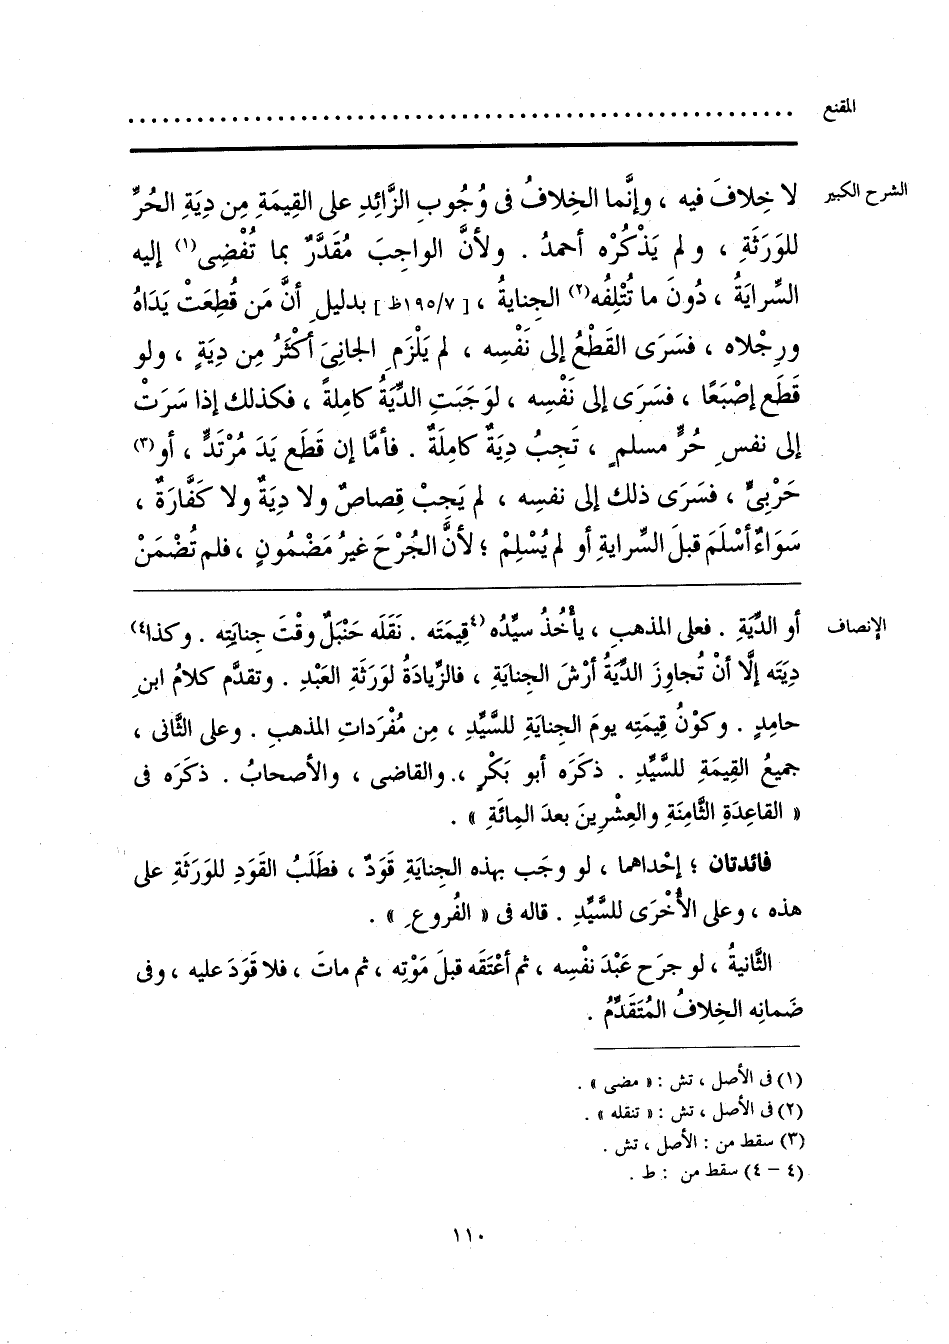 المقنع ........................................................
الشرح الكبير لا خِلافَ فيه ، وإنَّما الخِلافُ فى وُجُوبِ الزَّائِدِ على القِيمَةِ مِن دِيَةِ الحُرِّ
للوَرَثَةِ ، ولم يَذْكُرْه أحمدُ . ولأنَّ الواجِبَ مُقَدَّرٌ بما تُفْضِى(١) إليه
السِّرايَةُ ، دُونَ ما تُتْلِفُه(٢) الجنايةُ ، [ ١٩٥/٧ظ ] بدليلِ أنَّ مَن قُطِعَتْ يَدَاهُ
ورِجْلاه ، فسَرَى القَطْعُ إلى نَفْسِه ، لم يَلْزَمِ الجانِىَ أكْثَرُ مِن دِيَةٍ ، ولو
قَطَع إصْبَعًا ، فسَرَى إلى نَفْسِه ، لوَجَبَتِ الدِّيَةُ كاملةً ، فكذلك إذا سَرَتْ
إلى نفسِ حُرٍّ مسلمٍ ، تَجِبُ دِيَةٌ كامِلَةٌ . فأمَّا إن قَطَع يَدَ مُرْتَدٍّ ، أو(٣)
حَرْبِىٍّ ، فسَرَى ذلك إلى نفسِه ، لم يَجِبْ قِصاصٌ ولا دِيَةٌ ولا كَفَّارَةٌ ،
سَوَاءٌ أسْلَمَ قبلَ السِّرايةِ أو لم يُسْلِمْ ؛ لأنَّ الجُرْحَ غيرُ مَضْمُونٍ ، فلم تُضْمَنْ
الإنصاف أو الدِّيَةِ . فعلى المذهبِ ، يأْخُذُ سيِّدُه (٤قِيمَتَه . نَقَلَه حَنْبَلٌ وقْتَ جنايَتِه . وكذا٤)
دِيَتَه إلَّا أنْ تُجاوِزَ الدِّيَةُ أرْشَ الجنايَةِ ، فالزِّيادَةُ لوَرَثَةِ العَبْدِ . وتقدَّم كلامُ ابنِ
حامِدٍ . وكوْنُ قِيمَتِه يومَ الجِنايَةِ للسَّيِّدِ ، مِن مُفْرَداتِ المذهبِ . وعلى الثَّانى ،
جميعُ القِيمَةِ للسَّيِّدِ . ذكَرَه أبو بَكْرٍ ، والقاضى ، والأصحابُ . ذكَرَه فى
« القاعِدَةِ الثَّامنَةِ والعِشْرِينَ بعدَ المِائَةِ » .
فائدتان ؛ إحْداهما ، لو وجَب بهذه الجِنايَةِ قَوَدٌ ، فطَلَبُ القَوَدِ للوَرَثَةِ على
هذه ، وعلى الأُخْرَى للسَّيِّدِ . قاله فى « الفُروعِ » .
الثَّانيةُ ، لو جرَح عَبْدَ نفْسِه ، ثم أعْتَقَه قبلَ مَوْتِه ، ثم ماتَ ، فلا قَوَدَ عليه ، وفى
ضَمانِه الخِلافُ المُتَقَدِّمُ .
(١) فى الأصل ، تش : « مضى » .
(٢) فى الأصل ، تش : « تنقله » .
(٣) سقط من : الأصل ، تش .
(٤ – ٤) سقط من : ط .
١١٠